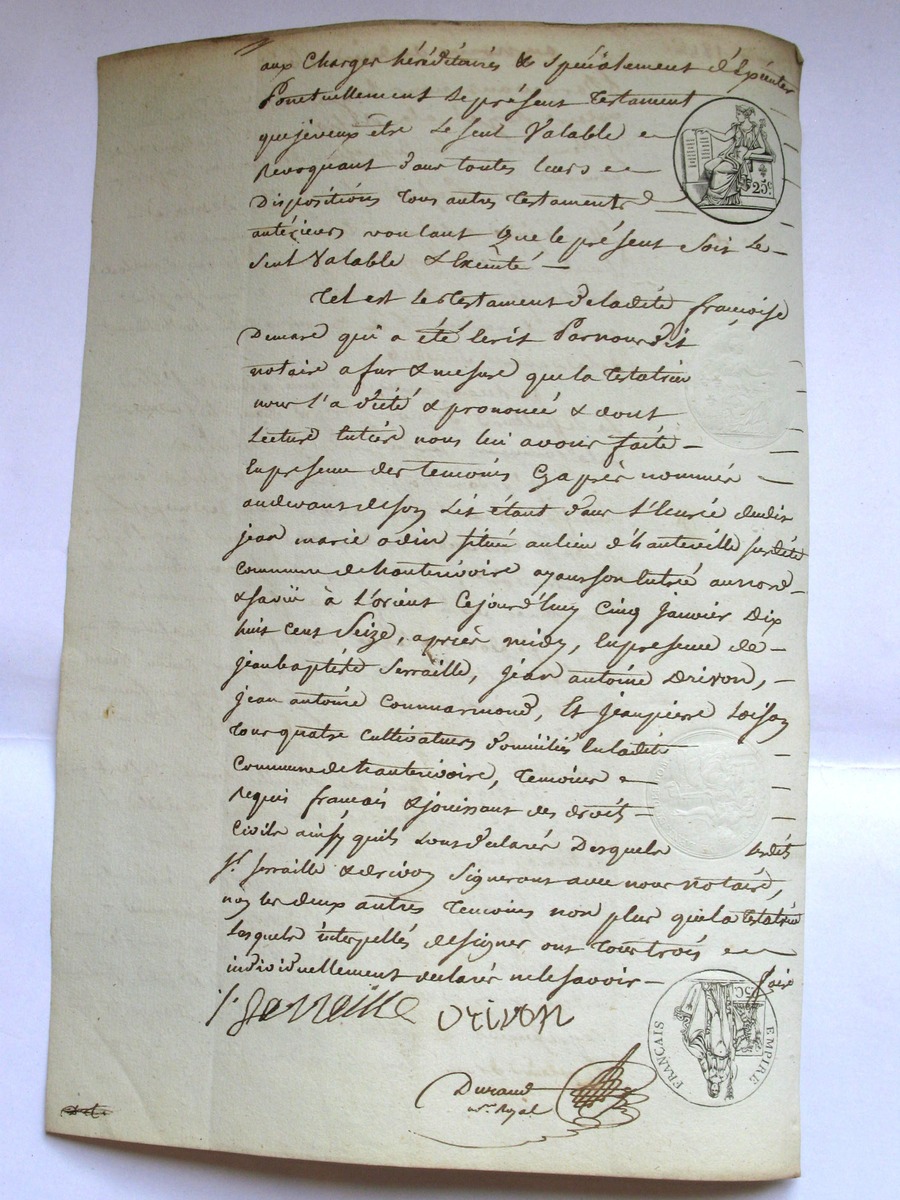 aux Charges héréditaires & spécialement d'Exécuter
Ponctuellement le présent testament
que je veux être le seul Valable
Revoquant dans toutes leurs
Dispositions tous autres testaments
antérieurs voulant que le présent soit le
seul Valable & Exécuté
25c.
Tel est le testament de ladite françoise
qui a été Ecrit Par nousdit
notaire a fur & mesure que la testatrice
nous l'a dicté & prononcé & dont
Lecture Entière nous lui avons faite
En presence des temoins Cy après nommés
au devant de son Lit étant dans l'
jean marie situé au lieu d'hauteville susdite
Commune de hauterivoire ayant son Entrée au nord
& à L'orient Cejourd'huy Cinq janvier Dix
huit Cent Seize, après midy, En presence de
jean baptiste Serraille, jean antoine Drivon,
jean antoine Commarmond, Et jean pierre Loison
tous quatre Cultivateurs domiciliés En ladite
Commune de hauterivoire, temoins
Requis français & jouissant des droits
Civils ainsy qu'ils L'ont déclaré Desquels lesdits
Srs Serraille & drivon Signeront avec nous Notaire,
non les deux autres temoins non plus que la testatrice
Lesquels interpellés de signer ont tous trois
individuellement déclaré ne le savoir
Serraille Drivon
FRANÇAIS EMPIRE 25C
Durand
Nre Royal